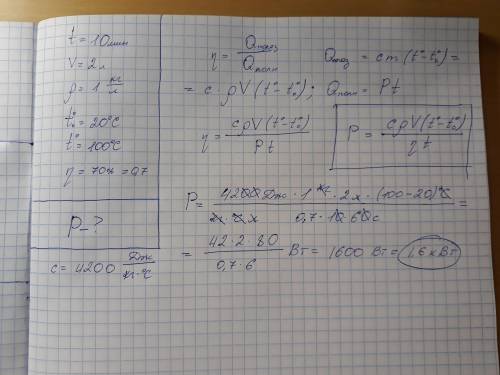 t = 10 мин
V = 2 л
ρ = 1 кг/л
t₀° = 20°C
t° = 100°C
η = 70% = 0,7
P - ?
c = 4200 Дж/кг·°C
η = Qполез/Qполн Qполез = cm(t° - t₀°) =
= c · ρV(t° - t₀°); Qполн = Pt
η = cρV(t° - t₀°)/Pt
P = cρV(t° - t₀°)/ηt
P = 4200 Дж · 1 кг · 2 л · (100 - 20)°C / кг · °C л 0,7 · 10 · 60 с =
= 42 · 2 · 80/0,7 · 6 Вт = 1600 Вт = 1,6 кВт